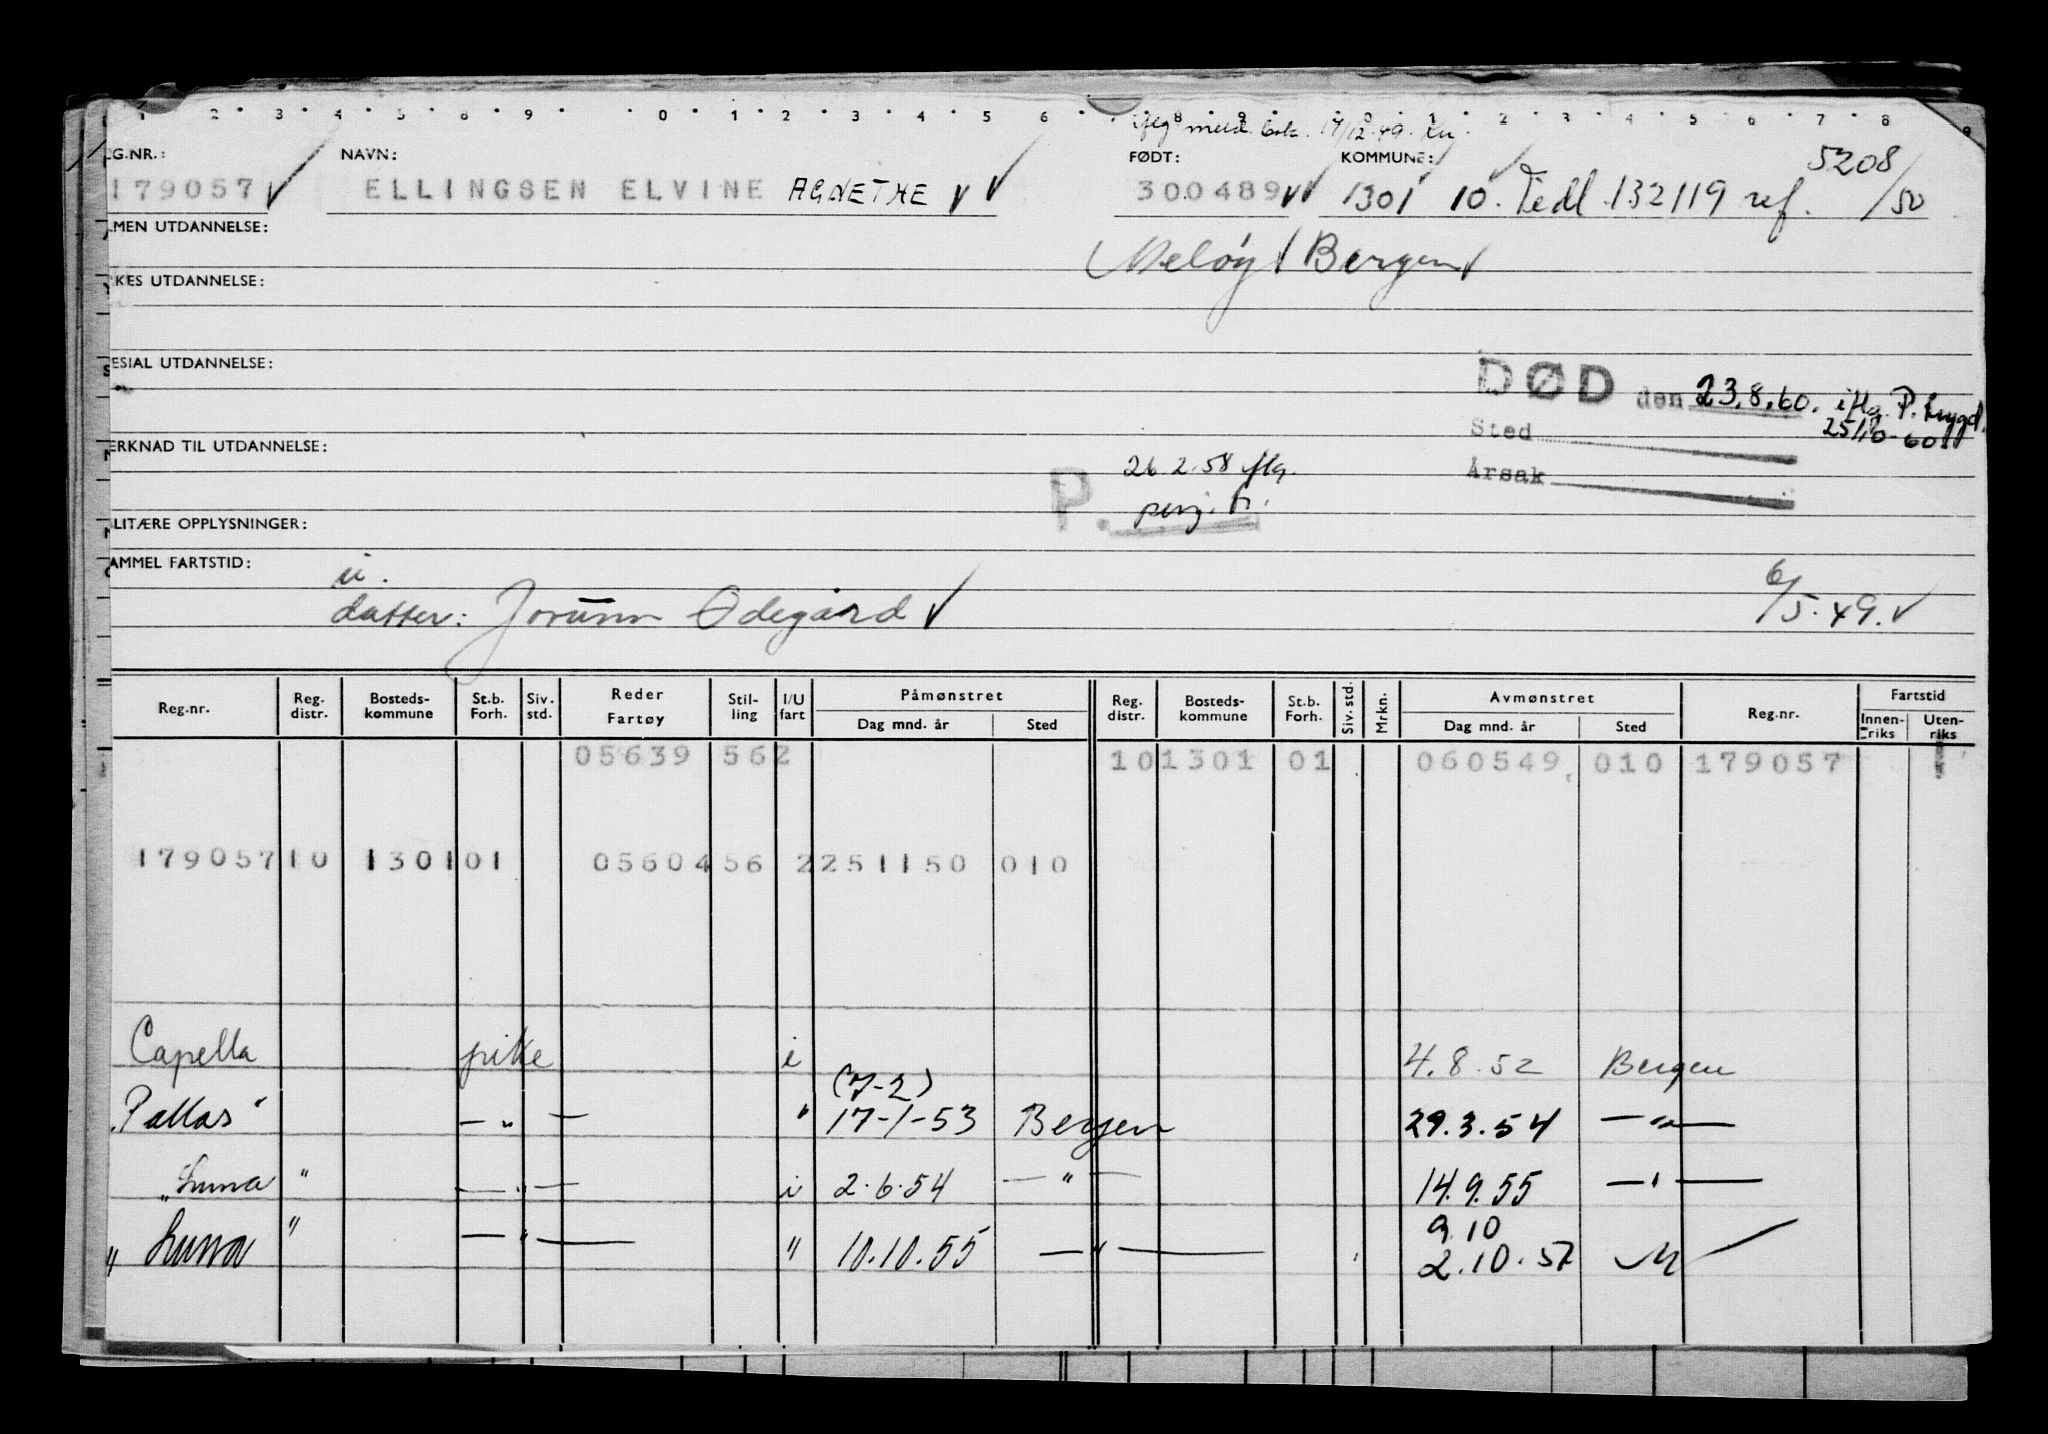 1 2 3 4 5 8 9 0 1 2 3 4 5 6 8 9 0 1 2 3 4 5 6 7 8 9
iflg meld. 14/12.49.
G.NR.: NAVN: FØDT: KOMMUNE: 5208/50
179057 ELLINGSEN ELVINE AGNETHE 300489 1301 10. Tedl. 132119 ref.
MEN UTDANNELSE: Meløy Bergen
KES UTDANNELSE:
ESIAL UTDANNELSE:
DØD den 23.8.60. iflg. P. trygd.
25/10-60
Sted
ERKNAD TIL UTDANNELSE:
P. 26.2.58 iflg.
Årsak
penj. tr.
LITÆRE OPPLYSNINGER:
AMMEL FARTSTID:
u.
datter: Jorunn Ødegård 6/5.49.
Reg.nr. Reg. distr. Bosteds- kommune St.b. Forh. Siv. std. Reder Fartøy Stil- ling I/U fart Påmønstret Dag mnd. år Sted Reg. distr. Bosteds- kommune St.b. Forh. Siv. std. Mrkn. Avmønstret Dag mnd. år Sted Reg.nr. Fartstid Innen- riks Uten- riks
05639 562 101301 01 060549 010 179057
17905710 130101 0560456 2251150 010
Capella pike i 4.8.52 Bergen
(7-2)
Pallas" — " — " 17-1-53 Bergen 29.3.54 — " —
"Luna " — " — i 2.6.54 — " — 14.9.55 — " —
9.10
" Luna " — " — " 10.10.55 — " — 2.10.57